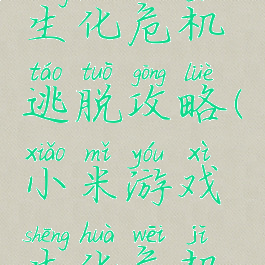 生化危机
táo tuō gōng lüè
逃脱攻略(
xiǎo mǐ yóu xì
小米游戏
shēng huà wēi jī
生化危机